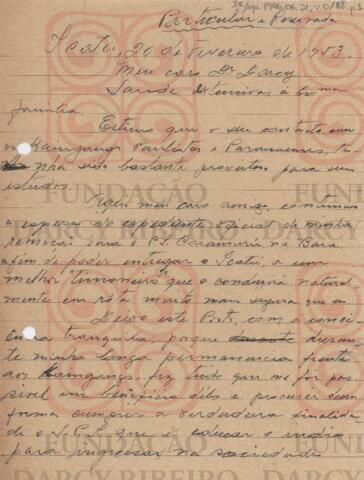 Particular e Reservada
Icatú, 20 de Fevereiro de 1953.
Meu caro Dr. Darcy
Saúde extensivas á Exma
familia.
Estimo que o seu contacto com
os Kaingangs Paulistas e Paranaenses, te-
nha sido bastante proveitoso para seus
estudos.
Aqui meu caro amigo, continuo
a espera do expediente oficial de minha
remoção para o P.I. Caramurú na Baía
afim de poder entregar o Icatú, a um
melhor timoneiro que o conduzirá natural-
mente em róta muito mais segura que eu
Deixo este Posto, com a consci-
ência tranquila, porque durante duran-
te minha longa permanencia frente
aos Kaingangs, fiz tudo que me foi pos-
sivel em beneficio deles e procurei dessa
forma cumprir a verdadeira finalida-
de o S.P.I. que é educar o indio
para ingressar na sociedade
FUNDAÇÃO
DARCY RIBEIRO
FUNDAÇÃO
DARCY RIBEIRO